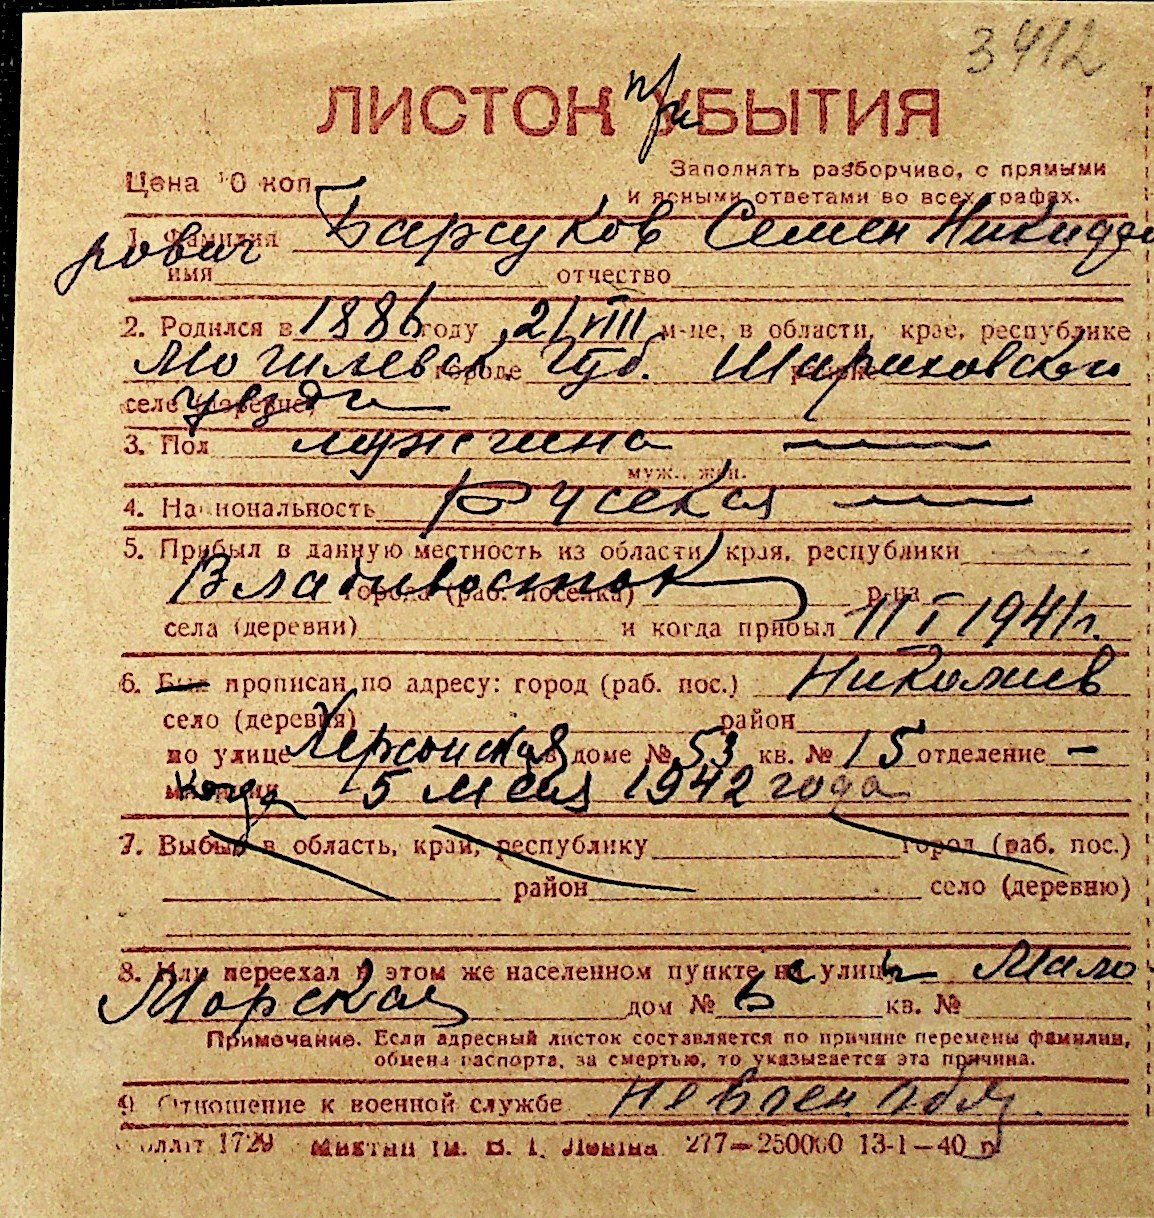 3412
ЛИСТОК при УБЫТИЯ
Цена 10 коп.
Заполнять разборчиво, с прямыми
и ясными ответами во всех графах.
1. Фамилия Барсуков Семен Никифо
рович
имя отчество
2. Родился в 1886 году 21/VIII м-це, в области, крае, республике
Могилевск. городе губ. районе
селе (деревне) уезда
3. Пол мужчина
муж., жен.
4. Национальность Русская
5. Прибыл в данную местность из области, края, республики
Владивосток города (раб. поселка) р-на
села (деревни) и когда прибыл 11 I 1941 г.
6. Был прописан по адресу: город (раб. пос.) Николаев
село (деревня) район
по улице Херсонская в доме № 53 кв. № 15 отделение —
милиции когда 5 мая 1942 года
7. Выбыл в область, край, республику город (раб. пос.)
район село (деревню)
8. Или переехал в этом же населенном пункте на улицу с Мало
Морская дом № 6 кв. №
Примечание. Если адресный листок составляется по причине перемены фамилии,
обмена паспорта, за смертью, то указывается эта причина.
9. Отношение к военной службе Невоен обяз.
1729 им. В. І. Леніна 277—250000 13-1—40 р.